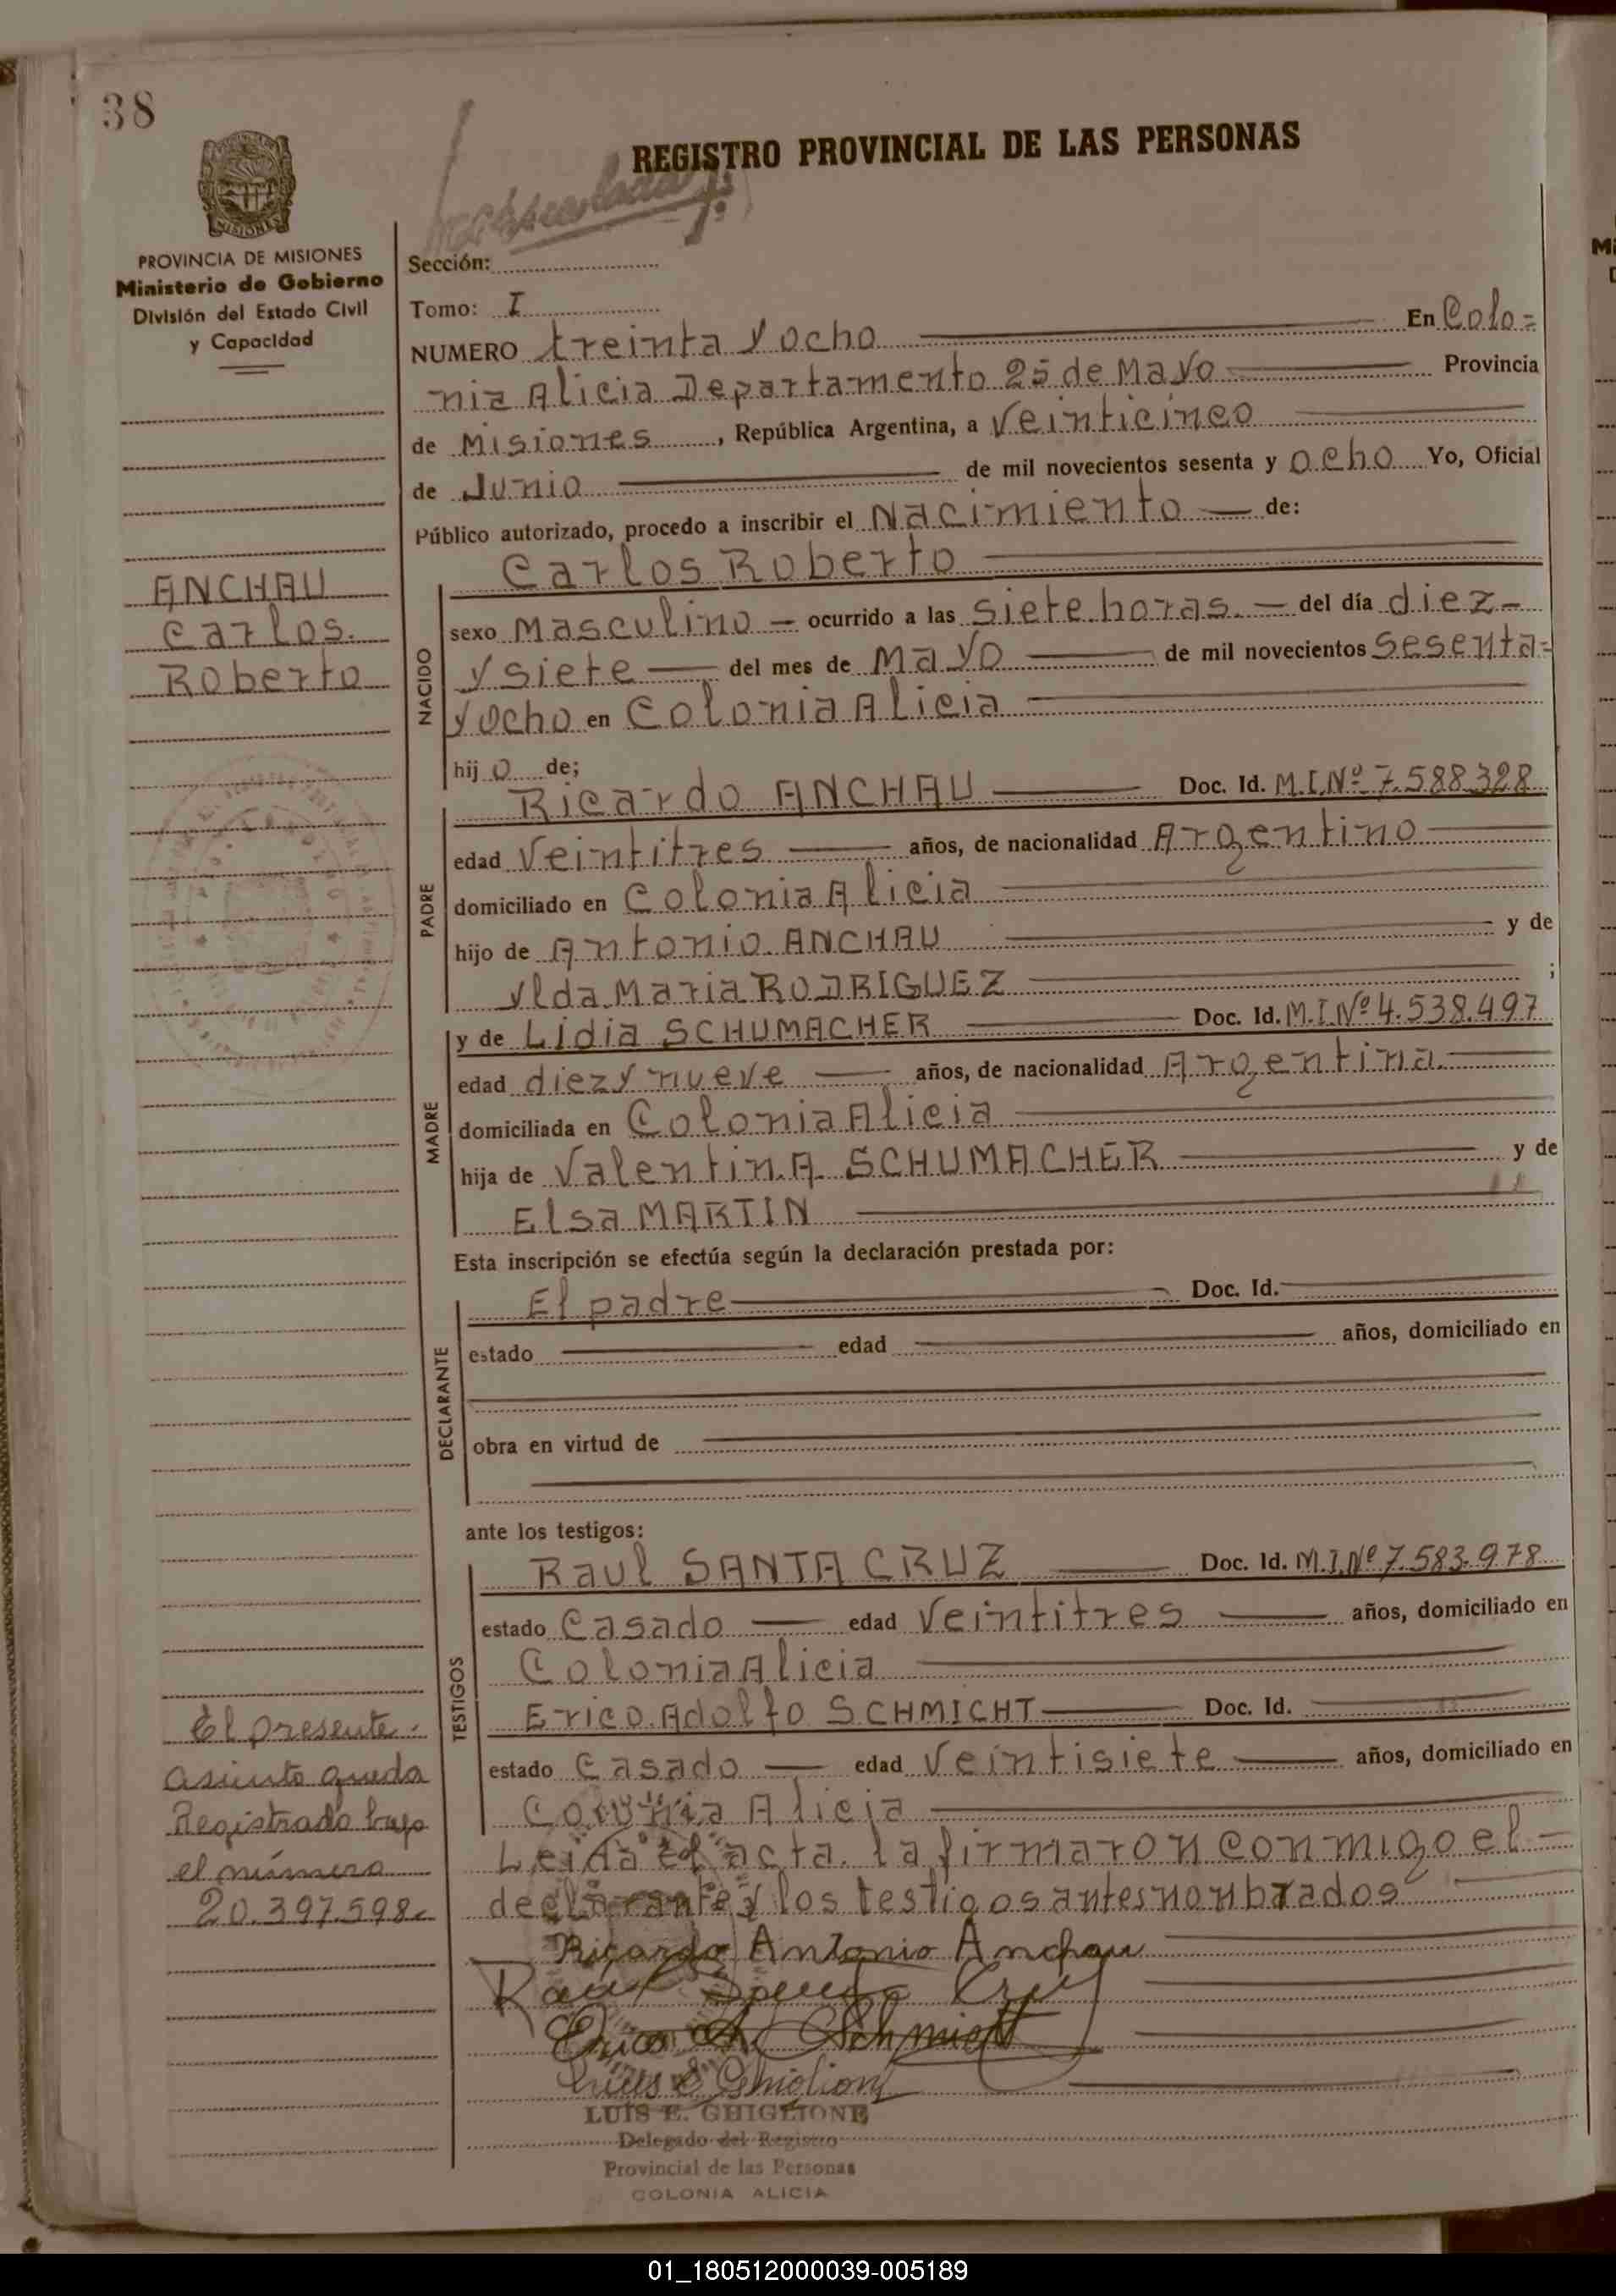 38
REGISTRO PROVINCIAL DE LAS PERSONAS
MISIONES
PROVINCIA DE MISIONES
Ministerio de Gobierno
División del Estado Civil
y Capacidad
Sección:
Tomo: I
NUMERO treinta y ocho En Colo=
nia Alicia Departamento 25 de Mayo Provincia
de Misiones, República Argentina, a Veinticinco
de Junio de mil novecientos sesenta y ocho Yo, Oficial
Público autorizado, procedo a inscribir el Nacimiento de:
ANCHAU
Carlos.
Roberto
NACIDO
Carlos Roberto
sexo Masculino - ocurrido a las siete horas. - del día diez-
y siete del mes de Mayo de mil novecientos sesenta=
y ocho en Colonia Alicia
hijo de;
PADRE
Ricardo ANCHAU Doc. Id. M.I.Nº 7.588.328
edad Veintitres años, de nacionalidad Argentino
domiciliado en Colonia Alicia
hijo de Antonio ANCHAU y de
Ylda Maria RODRIGUEZ ;
MADRE
y de Lidia SCHUMACHER Doc. Id. M.I.Nº 4.538.497
edad diez y nueve años, de nacionalidad Argentina.
domiciliada en Colonia Alicia
hija de ValentinA SCHUMACHER y de
Elsa MARTIN
Esta inscripción se efectúa según la declaración prestada por:
DECLARANTE
El padre Doc. Id.
estado edad años, domiciliado en
obra en virtud de
ante los testigos:
TESTIGOS
Raul SANTA CRUZ Doc. Id. M.I.Nº 7.583.978
estado Casado edad Veintitres años, domiciliado en
Colonia Alicia
Erico Adolfo SCHMICHT Doc. Id.
estado Casado edad Veintisiete años, domiciliado en
Colonia Alicia
Leida el acta. la firmaron conmigo el-
declarante y los testigos antes nombrados
El presente
asiento queda
Registrado bajo
el número
20.397.598.
Ricardo Antonio Anchau
Raul Santa Cruz
Erico A. Schmicht
Luis E Ghiglione
LUIS E. GHIGLIONE
Delegado del Registro
Provincial de las Personas
COLONIA ALICIA
01_180512000039-005189